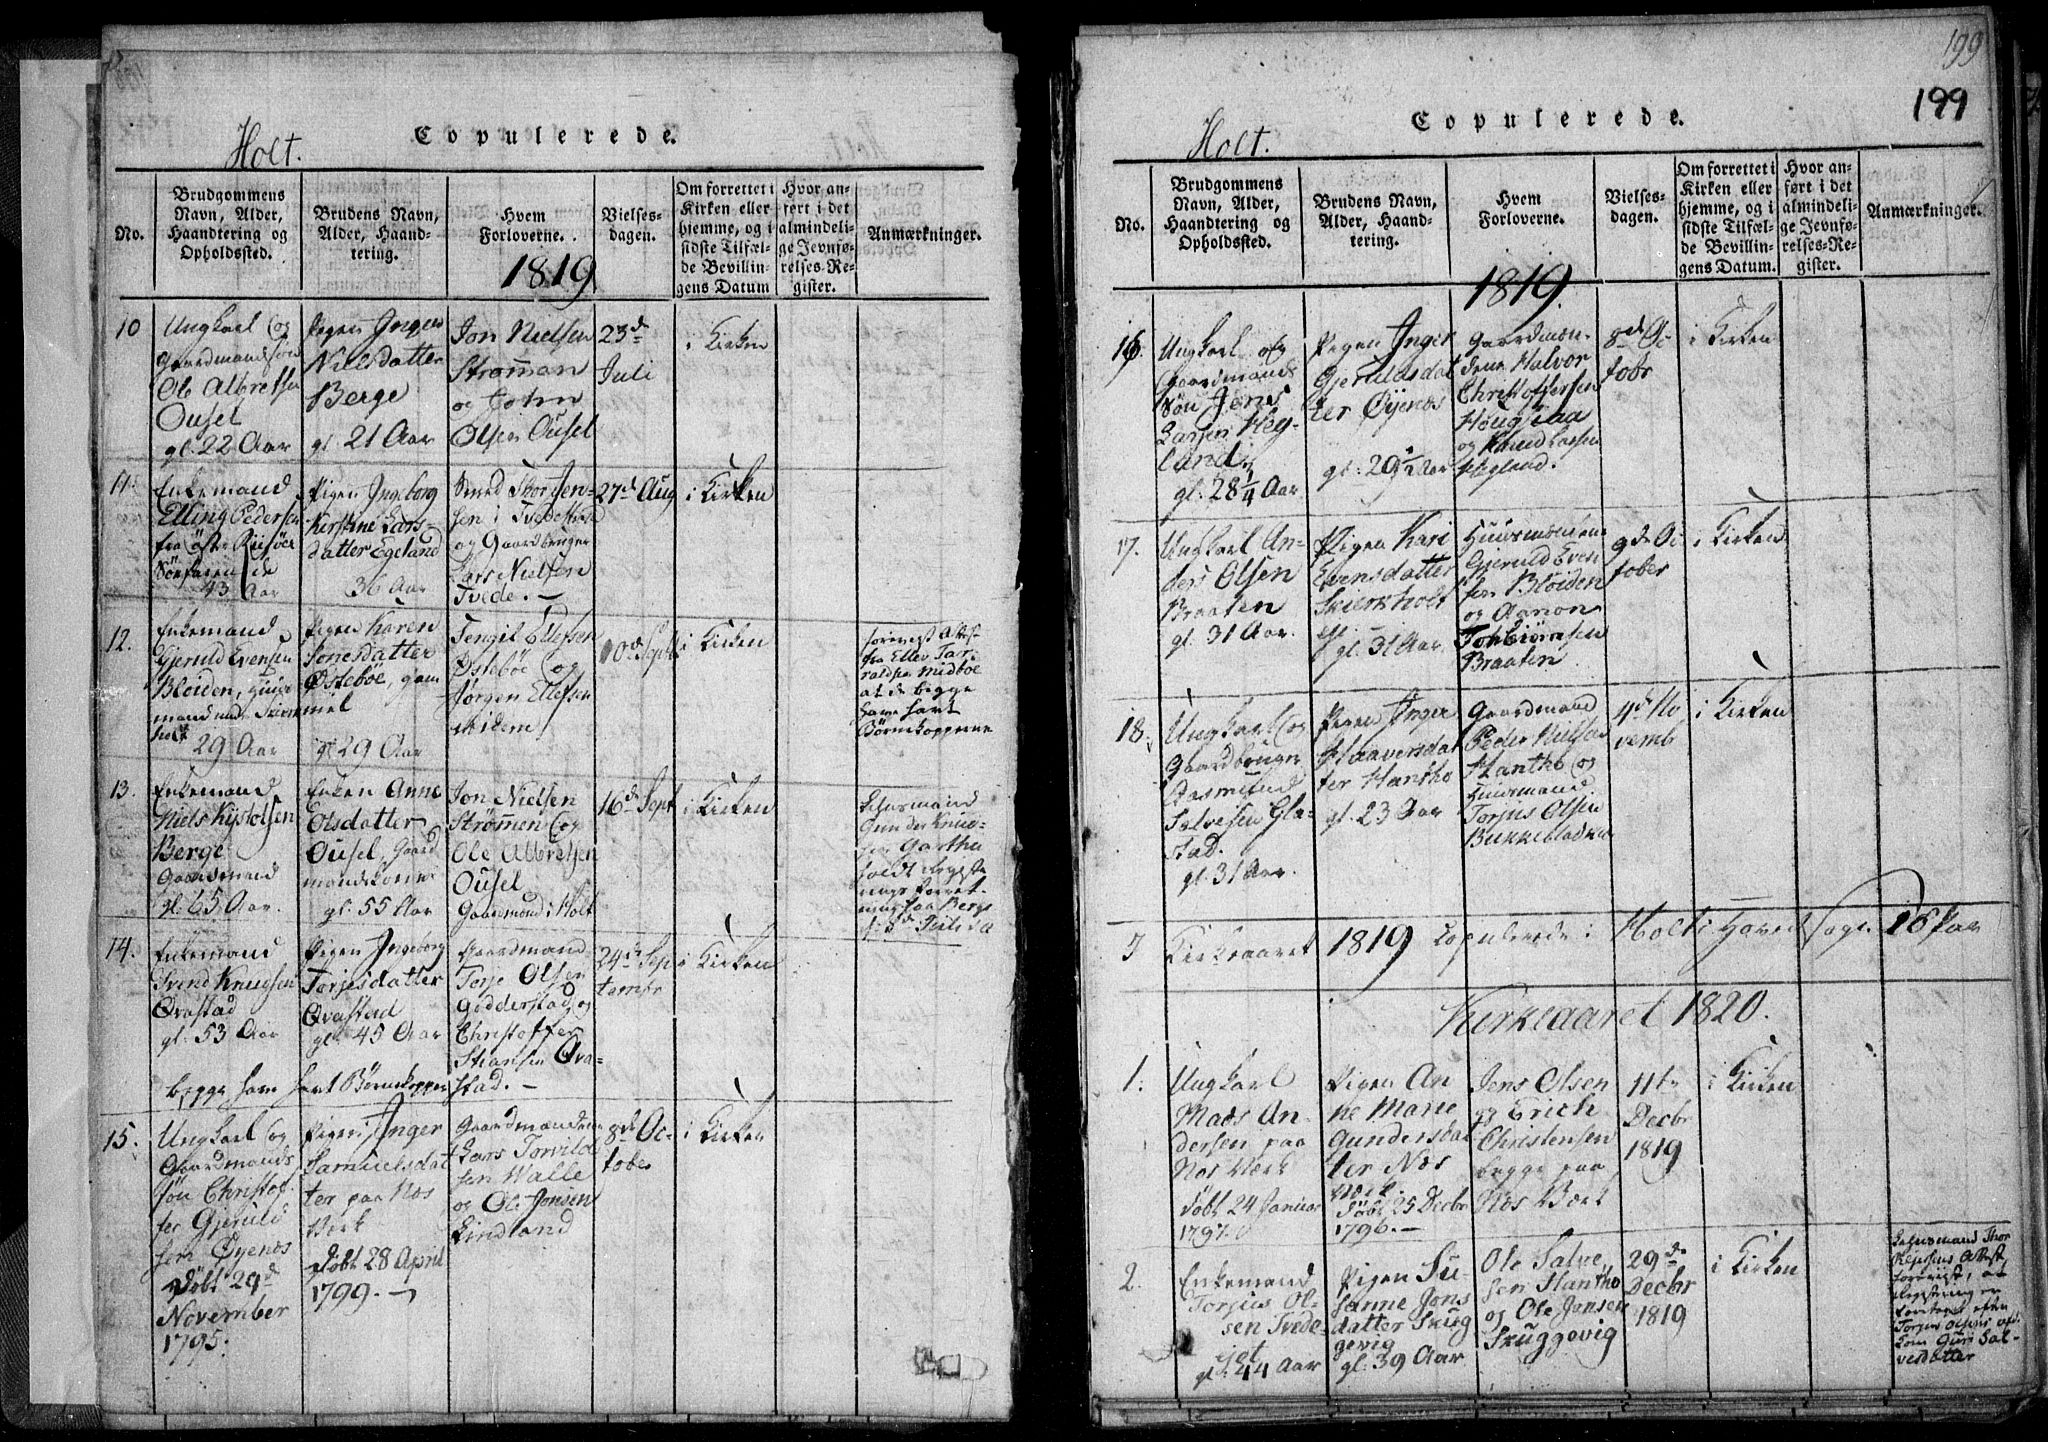 Holt.
Copulerede.
No.
Brudgommens Navn, Alder, Haandtering og Opholdssted.
Brudens Navn, Alder, Haandtering.
Hvem Forloverne.
Vielsesdagen.
Om forrettet i Kirken eller hjemme, og i sidste Tilfælde Bevillingens Datum
Hvor anført i det almindelige Jevnførelses-Register.
Anmærkninger.
1819
10
Ungkarl og
Gaardmandssøn
Ole Albretsen
Ousel
gl. 22 Aar
Pigen Inger
Nielsdatter
Berge
gl. 21 Aar
Jon Nielsen
Strømman
og John
Olsen Ousel
23d
Juli
i Kirken
11.
Enkemand
Elling Pedersen
fra Øster Riisøer
43 Aar
Pigen Ingeborg
Kirstine Lars-
datter Egeland
36 Aar
Smed Thor Jen-
sen i Tvedestrand
og Gaardbruger
Lars Nielsen
Tvede. —
27d Aug
i Kirken
12.
Enkemand
Gjeruld Evensen
Bløiden, Huus-
mand
29 Aar
Pigen Karen
Jonesdatter
Østebøe, gam
mel
gl 29 Aar
Tengil Ellefsen
Østebøe og
Jørgen Ellefsen
ibidem
10d Sept
i Kirken
forevist Attest
fra Ellev Tar-
raldsen Midboe
at de begge
have havt
Børnekopperne
13.
Enkemand
Niels Kistolsen
Berge
Gaardmand
gl. 65 Aar.
Enken Anne
Olsdatter
Ousel, Gaard
mandskone
gl. 55 Aar
Jon Nielsen
Strømmen og
Ole Albretsen
Ousel
Gaardmænd i Holt
16d Sept
i Kirken
Lensmand
Gunder Knud-
sen Gartha
14.
Enkemand
Svend Knudsen
Øvastad
gl. 53 Aar
Pigen Ingeborg
Torjesdatter
Øvastad
gl. 45 Aar
Gaardmænd
Torje Olsen
Godderstad og
Christoffer
Stiansen Øva-
stad. —
24d Sep
tembr
i Kirken
begge have havt Børnekopper
15.
Ungkarl og
Gaardmands
søn Christof-
fer Gjeruld
sen Øyenæs
døbt 29d
November
1795.
Pigen Inger
Samuelsdat
ter paa Næs
Værk
døbt 28 April
1799. —
Gaardmændene
Lars Torvild
sen Walle
og Ole Jensen
Lindland
8d Oc-
tober
i Kirken
199
199
Holt.
Copulerede.
No.
Brudgommens Navn, Alder, Haandtering og Opholdssted.
Brudens Navn, Alder, Haandtering.
Hvem Forloverne.
Vielsesdagen.
Om forrettet i Kirken eller hjemme, og i sidste Tilfælde Bevillingens Datum.
Hvor anført i det almindelige Jevnførelses-Register.
Anmærkninger.
1819.
16.
Ungkarl og
Gaardmands
Søn Jens
Larsen Heg-
land
gl: 28 1/4 Aar
Pigen Inger
Gjeruldsdat
ter Øyenæs
gl: 29 1/2 Aar
Gaardmæn-
dene Halvor
Christoffersen
Hougstaa
og Knud Larsen
Hegland.
8d Oc
tobr
i Kirken
17.
Ungkarl An-
ders Olsen
Braaten
gl. 31 Aar.
Pigen Kari
Evensdatter
Skierkholt
gl. 31 Aar
Huusmændene
Gjeruld Even
sen Bløiden
og Aanon
Torbiørnsen
Braaten
9d Oc
tober
i Kirken
18.
Ungkarl og
Gaardbruger
Aasmund
Salvesen Gla-
stad.
gl. 31 Aar.
Pigen Inger
Haaversdat
ter Hantho
gl. 23 Aar
Gaardmand
Peder Nielsen
Hantho og
Huusmand
Torjus Olsen
4d No
vemb
i Kirken
I Kirkeaaret 1819 Copulerede i Holts Hoved Sogn 18 Par
Kirkeaaret 1820.
1.
Ungkarl
Mads An-
dersen paa
Næs Værk
døbt 24 Januar
1797.
Pigen An
ne Marie
Gundersdat
ter Næs
Værk.
døbt 25 Decbr
1796. —
Jens Olsen
og Erich
Christensen
begge paa
Næs Værk
11te
Decbr
1819
i Kirken
2.
Enkemand
Torjus Ol-
sen Tvede-
jet
gl. 44 Aar
Pigen Su-
sanne Jons
datter Skug
gevig
gl. 39 Aar
Ole Salve
sen Hantho
og Ole Jansen
Skuggevig
29d
Decbr
1819
i Kirken
Lensmand Thor
Attest
forevist, at
Registering er
foretaget efter
Torjus Olsens afd.
Kone Guri Sal-
vesdatter